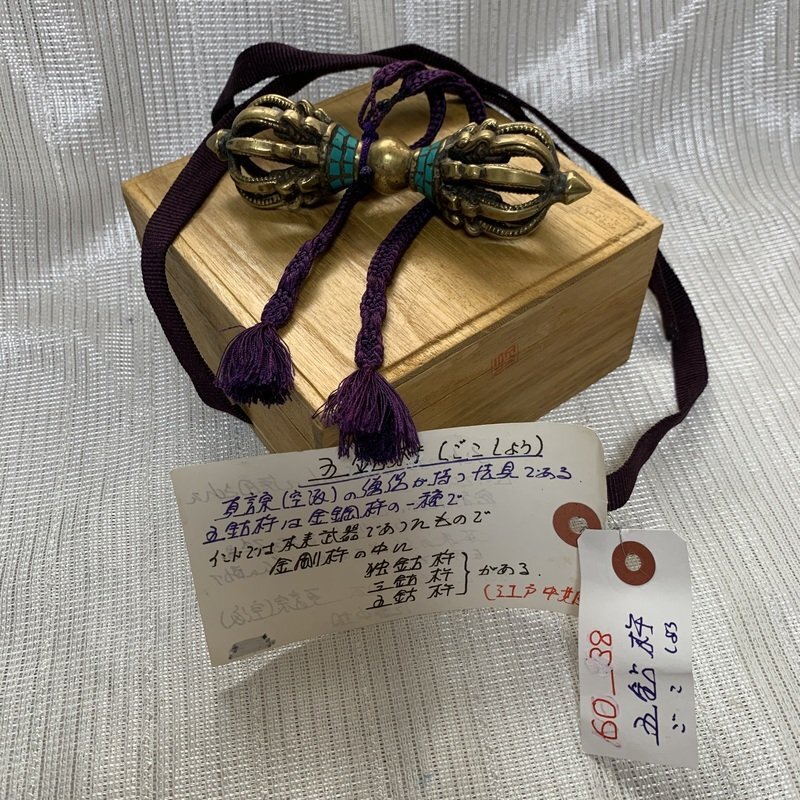 五鈷杵(ごこしょう)
真言宗(空海)の僧侶が持つ法具である.
五鈷杵は金剛杵の一種で
インドでは本来武器であったもので
金剛杵の中に
独鈷杵
三鈷杵
五鈷杵
がある.
(江戸中期
60-38
五鈷杵
ごこしょう